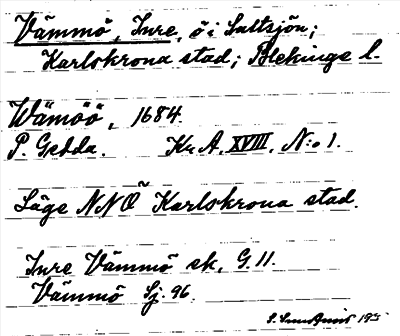 Vämmö, Inre, ö i Saltsjön;
Karlskrona stad; Blekinge l.
Wämöö, 1684.
P. Gedda. Kr. A. XVIII, N:o 1.
Läge NNÖ Karlskrona stad.
Inre Vämmö sk, G. 11.
Vämmö Sj. 96.